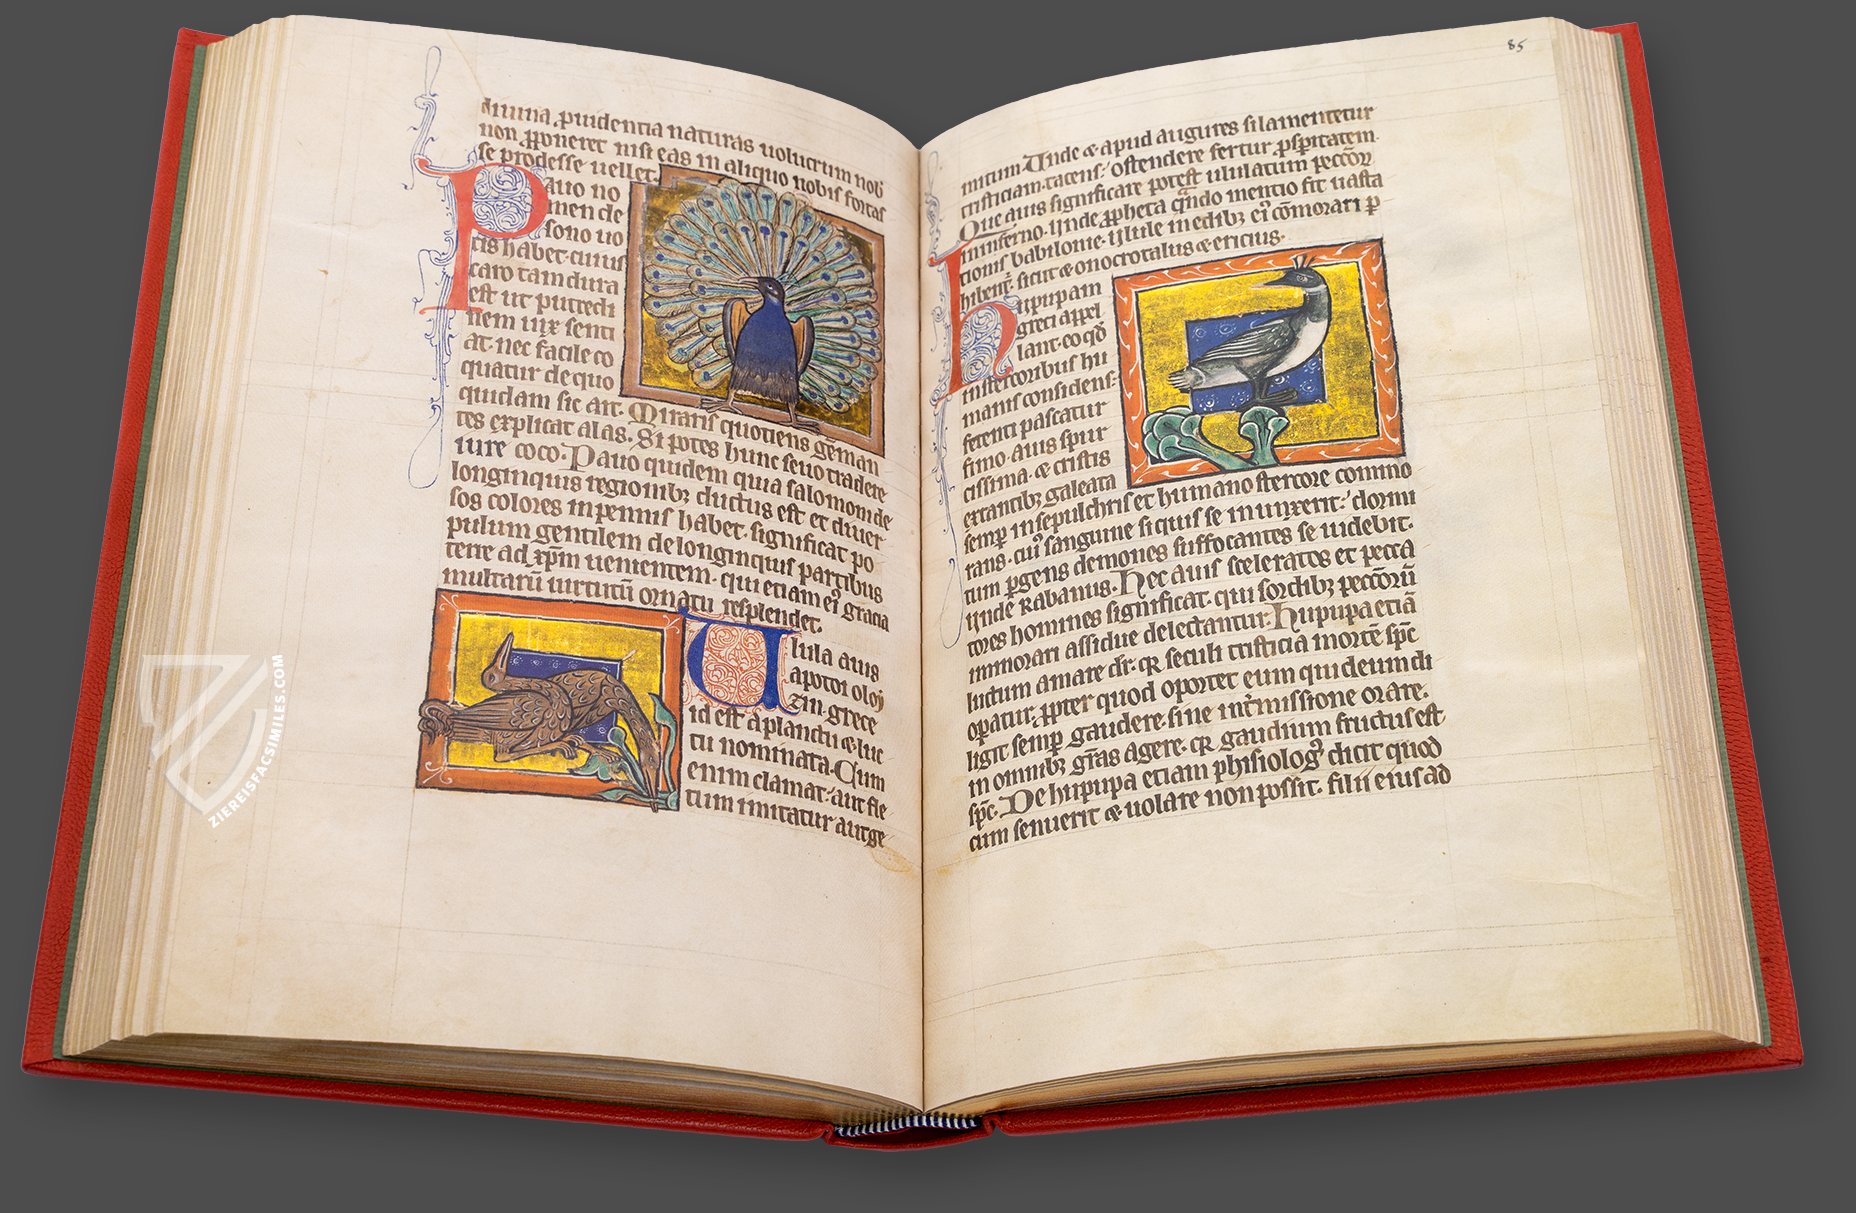 diuina puidentia naturas uolucrum nob
non pponeret nisi eas in aliquo nobis fortas
se prodesse uellet.
Pauo no
men de
sono uo
cis habet. cuius
caro tam dura
est ut putredi
nem uix senti
at. nec facile co
quatur de quo
quidam sic ait. Miraris quotiens geman
tes explicat alas. Si potes hunc seuo tradere
iure coco. Pauo quidem quia salomoni de
longinquis regionibz ductus est et diuer
sos colores in pennis habet. significat po
pulum gentilem de longinquis partibus
terre ad xpm uenientem. qui etiam ei gracia
multarū uirtutū ornatu resplendet.
Ulula auis
apotoi oloy
zin grece
id est a planctu & luc
tu nominata. Cum
enim clamat. aut fle
tum imitatur aut ge
85
mitum. Unde & apud augures si lamentetur
tristiciam. tacens. ostendere fertur psperitatem.
Que auis significare potest ululatum peccōȝ
in inferno. Unde ppheta qndo mentio fit uasta
tionis babilonie. Ulule in edibz ei cōmorari p
hibent. sicut & onocrotalus & ericius.
hupupam
greci appel
lant. eo qd
in stercoribus hu
manis considens.
fetenti pascatur
fimo. Auis spur
cissima. & cristis
extantibz galeata
semp in sepulchris et humano stercore commo
rans. cui sanguine si quis se inunxerit. dormi
tum pgens demones suffocantes se uidebit.
Unde Rabanus. Hec auis sceleratos et pecca
tores homines significat. qui sordibz peccōrū
immorari assidue delectantur. Hupupa etiā
luctum amare dr. qr seculi tristicia mortē spc
opatur. ppter quod oportet eum qui deum di
ligit semp gaudere. sine intmissione orare.
in omnibz gras agere. qr gaudium fructus est
spc. De hupupa etiam phisiolog dicit quod
cum senuerit & uolare non possit. filii eius ad
ZIEREISFACSIMILES.COM